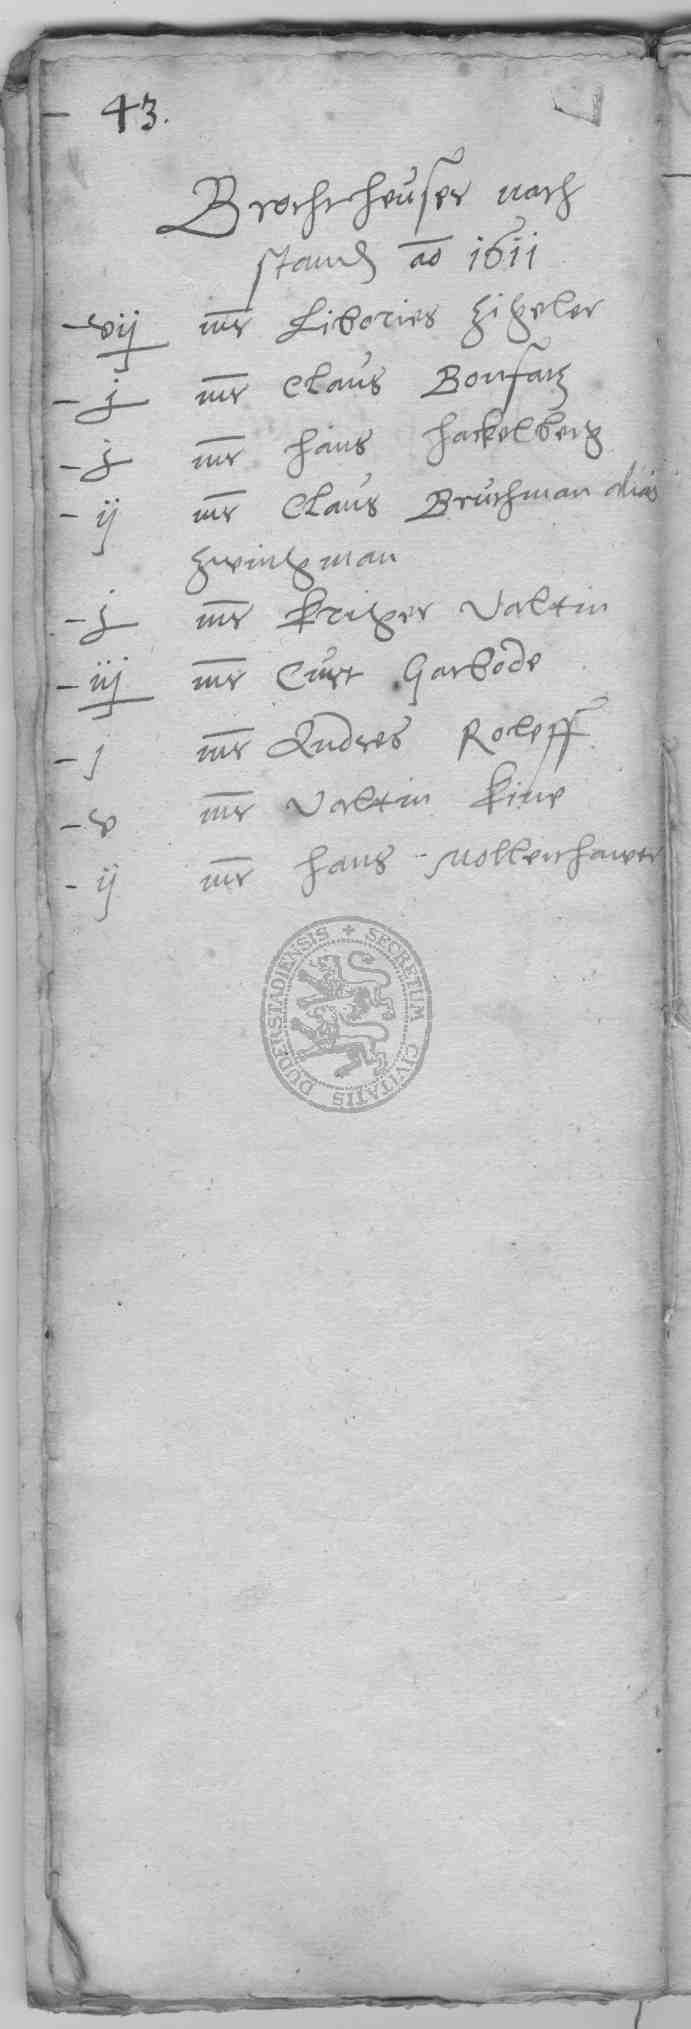 43.
Brochtheuser nach
standt ao 1611
vij mr Libories Zigeler
j mr Claus Bonsack
j mr Hans Hackelberg
ij mr Claus Bruchman alias
Zwingman
j mr Kriger Valtin
iij mr Curt Garbode
j mr Andres Roleff
v mr Valtin Kine
ij mr Hans Mollenhawer
SECRETUM CIVITATIS DUDERSTADIENSIS